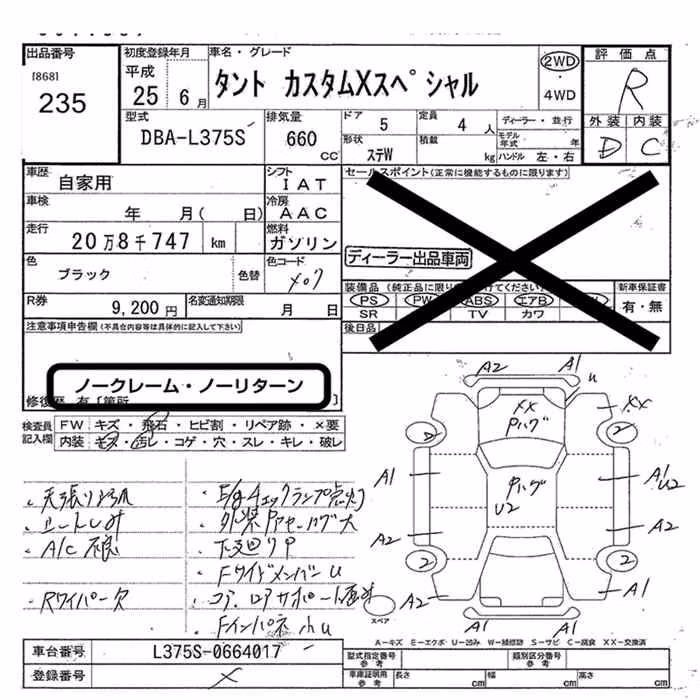 出品番号
[868]
235
初度登録年月
平成
25 6月
車名・グレード
タント カスタムXスペシャル
2WD
・
4WD
評価点
R
外装 内装
D C
型式
DBA-L375S
排気量
660
CC
ドア 5
定員 4人
形状 ステW
積載 kg
ディーラー・並行
モデル年式 年
ハンドル 左・右
車歴
自家用
シフト
IAT
車検
年 月( 日)
冷房
AAC
走行
20万8千747 km
燃料
ガソリン
色
ブラック
色替
色コード
X07
R券
9,200円
名変通知期限
月 日
セールスポイント(正常に機能するものに限ります)
ディーラー出品車両
装備品
PS PW ABS エアB
SR TV カワ
新車保証書
有・無
後日品
注意事項申告欄(不具合内容等は具体的に記入して下さい)
ノークレーム・ノーリターン
修復歴 有〔箇所 〕
検査員記入欄
FW キズ・飛石・ヒビ割・リペア跡・×要
内装 キズ・汚レ・コゲ・穴・スレ・キレ・破レ
・シートシミ
・A/C不良
・Rワイパー欠
・E/gチェックランプ点灯
・下廻りP
・FサイドメンバーU
A2 A1
U
XX
Pハゲ
XX
2 2
A1
Pハゲ
U2
A1
U2
A2 A2
2 2
A2 A1
A1 A1
スペア
A-キズ E-エクボ U-凹み W-補修跡 S-サビ C-腐食 XX-交換済
車台番号
L375S-0664017
登録番号
×
型式指定番号
参考
類別区分番号
参考
車庫証明用
参考
長さ cm
幅 cm
高さ cm